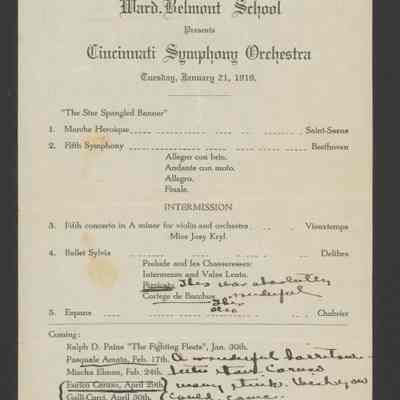 Ward-Belmont School
Presents
Cincinnati Symphony Orchestra
Tuesday, January 21, 1919.
"The Star Spangled Banner"
1. Marche Heroique Saint-Saens
2. Fifth Symphony Beethoven
Allegro con brio.
Andante con moto.
Allegro.
Finale.
INTERMISSION
3. Fifth concerto in A minor for violin and orchestra Vieuxtemps
Miss Josy Kryl.
4. Ballet Sylvia Delibes
Prelude and les Chasseresses:
Intermezzo and Valse Lento.
Pizzicato. This was absolutely
Cortege de Bacchus. wonderful
This
also
5. Espana Chabrier
Coming:
Ralph D. Paine "The Fighting Fleets", Jan. 30th.
Pasquale Amato, Feb. 17th. A wonderful barritone
Mischa Elman, Feb. 24th. better than Caruso
Enrico Caruso, April 29th. many think. Wish you
Galli-Curci, April 30th. could come